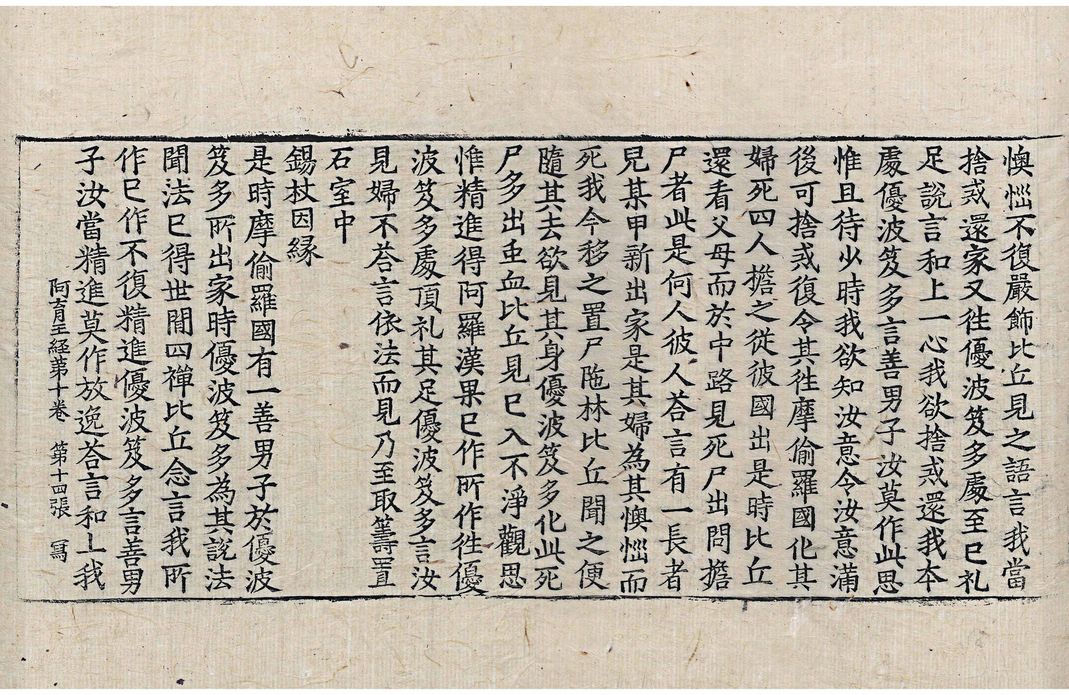 懊惱不復嚴飾比丘見之語言我當
捨戒還家又徃優波笈多處至已礼
足說言和上一心我欲捨戒還我本
處優波笈多言善男子汝莫作此思
惟且待少時我欲知汝意令汝意滿
後可捨戒復令其徃摩偷羅國化其
婦死四人擔之從彼國出是時比丘
還看父母而於中路見死尸出問擔
尸者此是何人彼人荅言有一長者
兒某甲新出家是其婦為其懊惱而
死我今移之置尸陁林比丘聞之便
隨其去欲見其身優波笈多化此死
尸多出虫血比丘見已入不淨觀思
惟精進得阿羅漢果已作所作徃優
波笈多處頂礼其足優波笈多言汝
見婦不荅言依法而見乃至取籌置
石室中
錫杖因縁
是時摩偷羅國有一善男子於優波
笈多所出家時優波笈多為其說法
聞法已得世閒四禪比丘念言我所
作已作不復精進優波笈多言善男
子汝當精進莫作放逸荅言和上我
阿育王經第十卷 第十四張 冩